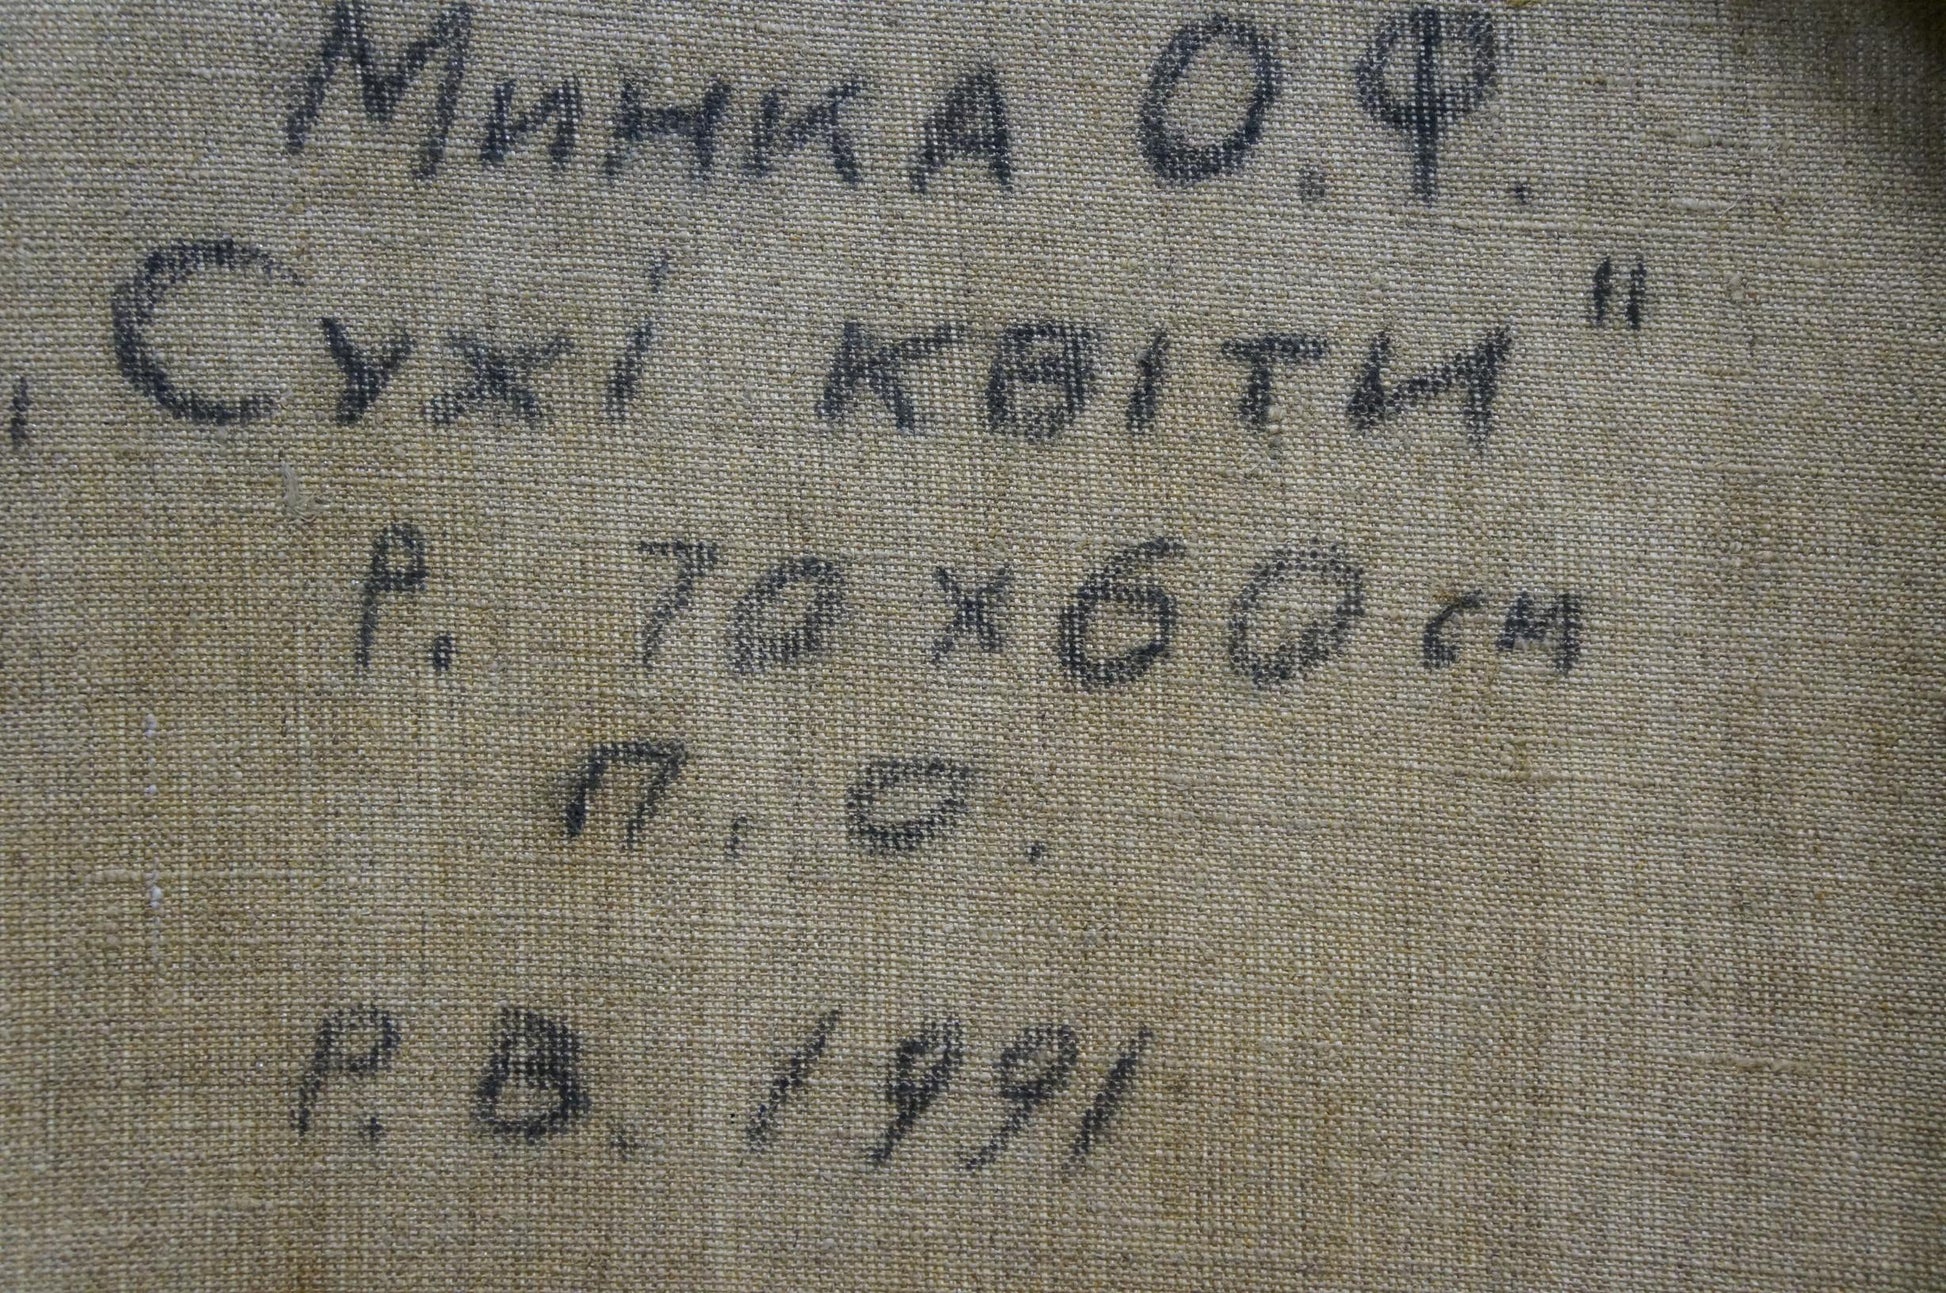 Минка О.Ф.
„Сухі квіти"
Р. 70х60 см
п. о.
Р. В. 1991